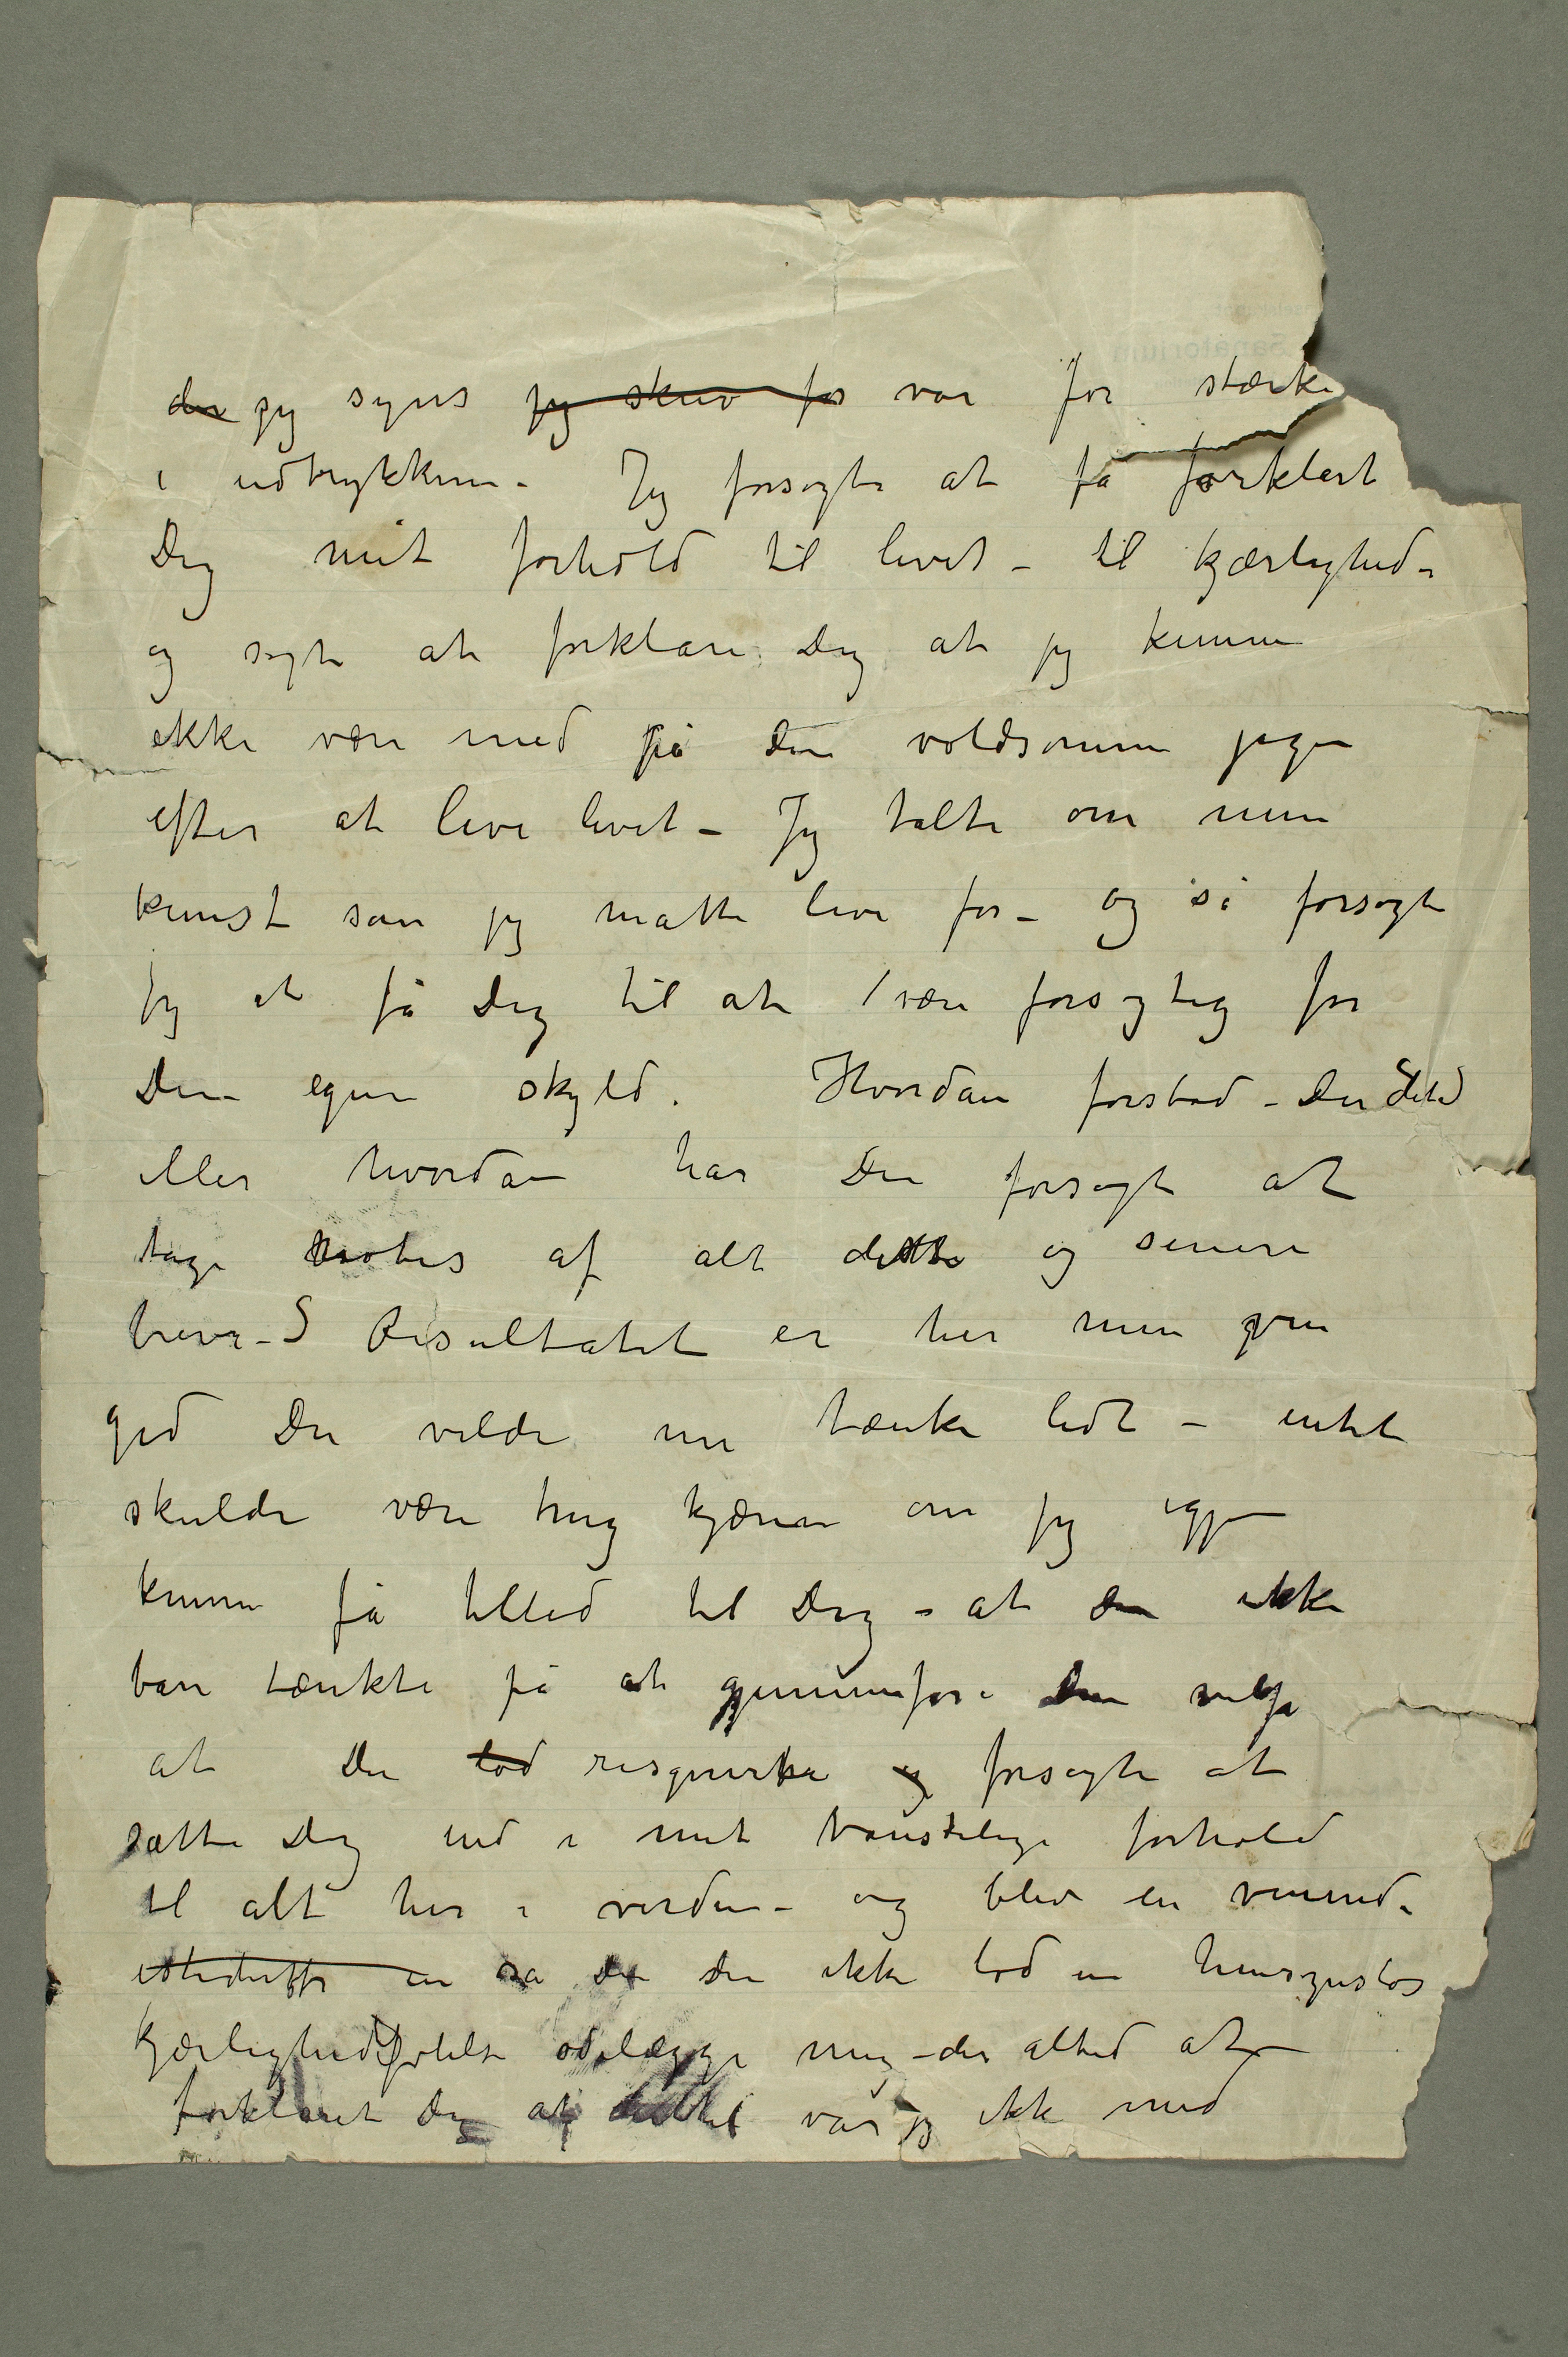 der jeg syns jeg skrev for var for stærke
i udtrykkene – Jeg forsøgte at få forklart
Dig mit forhold til livet – til kjærlighed –
og søgte at forklare Dig at jeg kunne
ikke være med på den voldsomme jagen
efter at leve livet – Jeg talte om min
kunst som jeg måtte leve for – og så forsøgte
jeg at få Dig til at være forsigtig for
Din egen skyld. Hvordan forstod – Du det
eller hvordan har Du forsøgt at
tage notis af alt dette og senere
breve – Resultatet er her men
gid Du vilde nu tænke lidt – intet
skulde være mig kjærere om jeg igjen
kunne få tillid til Dig – at Du ikke
bare tænkte på at gjennemføre Din vilje
at Du lod og forsøgte at
sætte Dig ind i mit vanskelige forhold
til alt her i verden – og blev en veninde
en så Du ikke lod en hensynsløs
kjærlighedsfølelse ødelægge mig – der altid at
forklaret Dig at var jeg ikke med